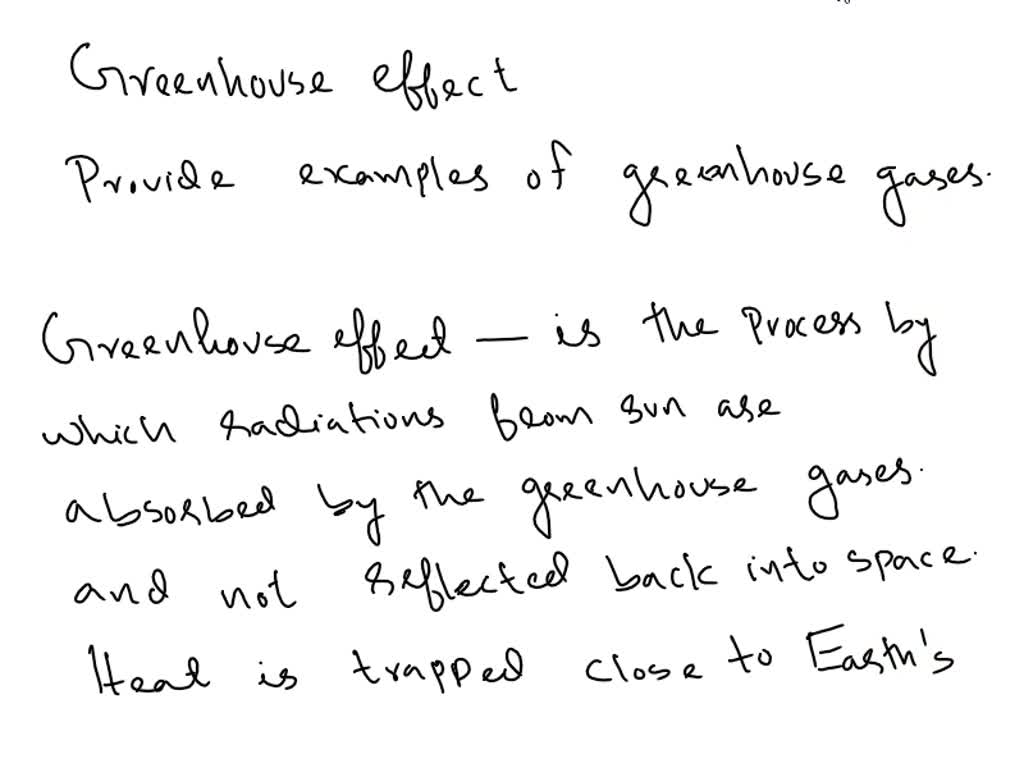 Greenhouse effect
Provide examples of greenhouse gases.
Greenhouse effect — is the process by
which radiations from sun are
absorbed by the greenhouse gases.
and not reflected back into space.
Heat is trapped close to Earth's